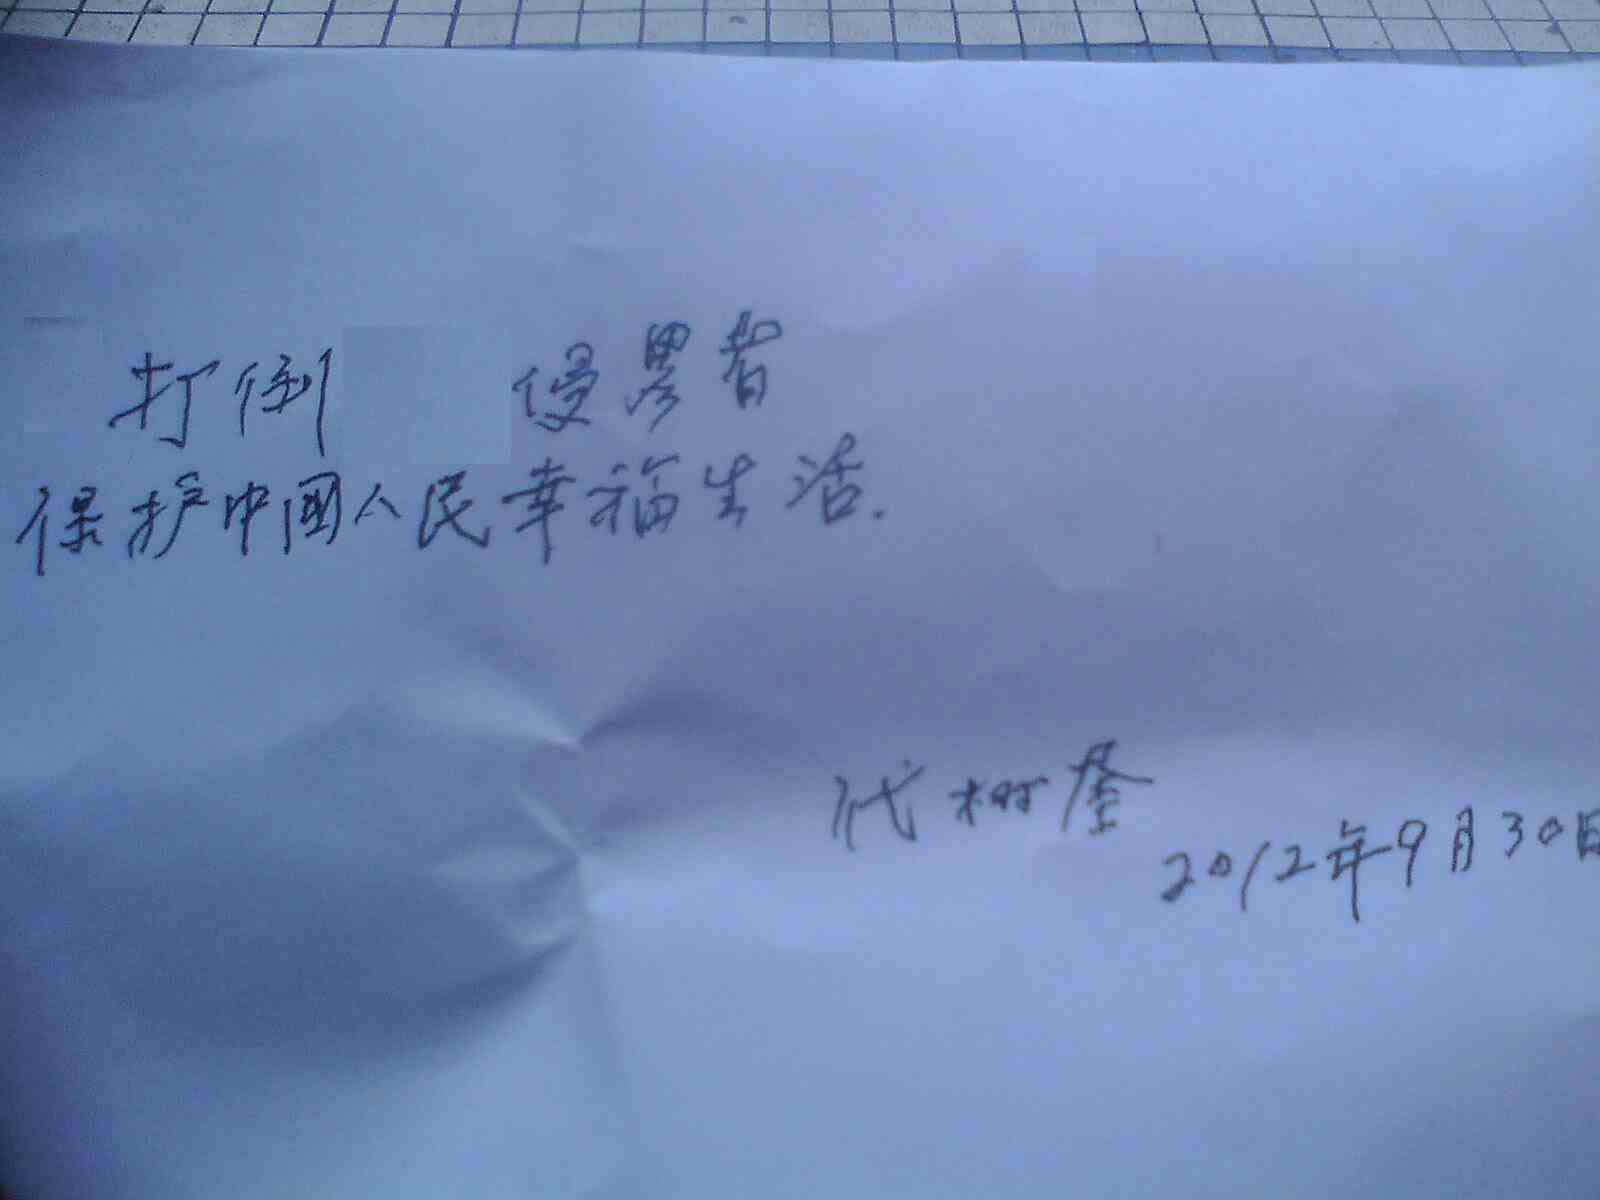 打倒 侵略者
保护中国人民幸福生活.
代树
2012年9月30日